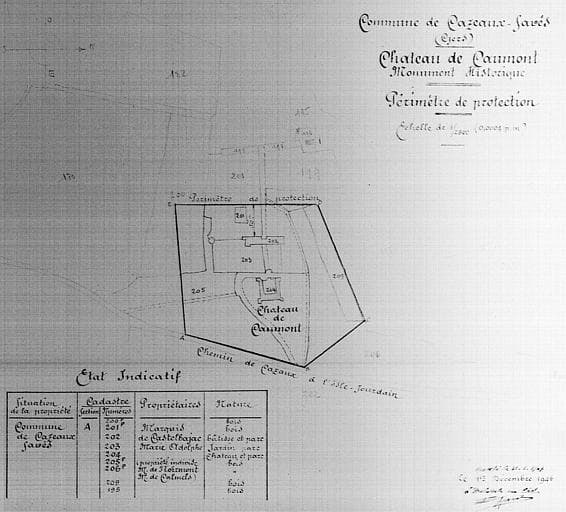 Commune de Cazeaux-Savés
(Gers)
Chateau de Caumont
Monument Historique
Périmètre de protection
Echelle de 1/2500 (0,0004 p.m)
192
193
203
200
Périmètre de protection
201
202
203
204
205
209
206
Chateau
de
Caumont
A
B
C
E
Chemin de Cazaux à l'Isle-Jourdain
Etat Indicatif
Situation de la propriété
Cadastre
Section
Numéros
Propriétaires
Nature
Commune de Cazeaux Savés
A
200P bois
201P Marquis bois
202 de Castelbajac bâtisse et parc
203 Marie Adolphe Jardin parc
204 Chateau et parc
205P (propriété indivise bois
206P M. de Noirmont "
M. de Calmels)
209 bois
195 bois
Le 12 Decembre 1946